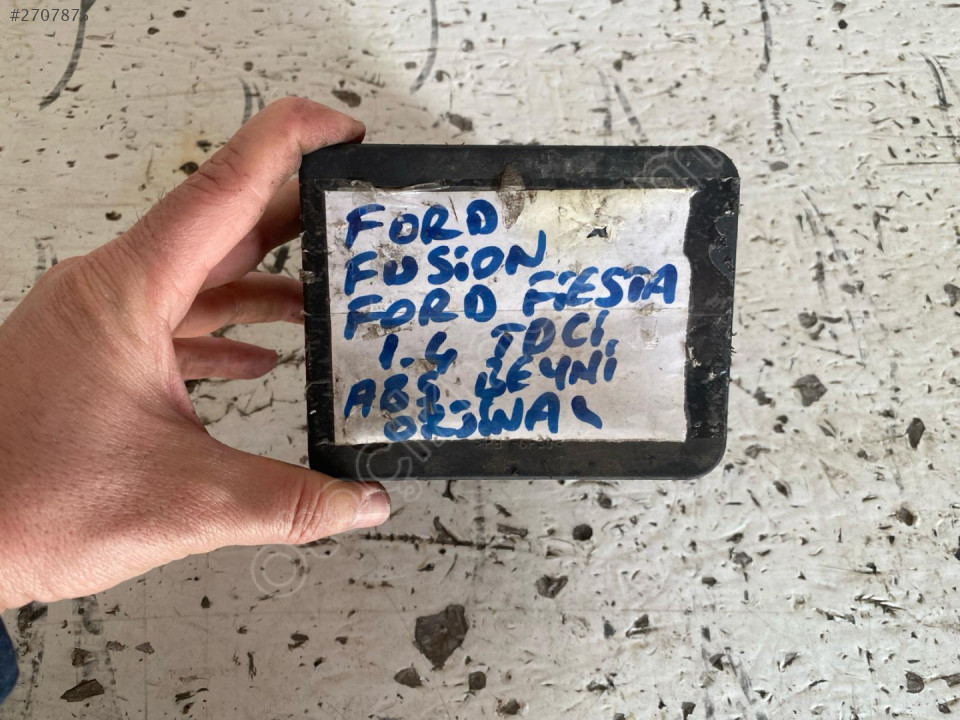 #270787
FORD
FUSiON
FORD FiESTA
1.4 TDCİ
ABS BEYNİ
ORJİNAL